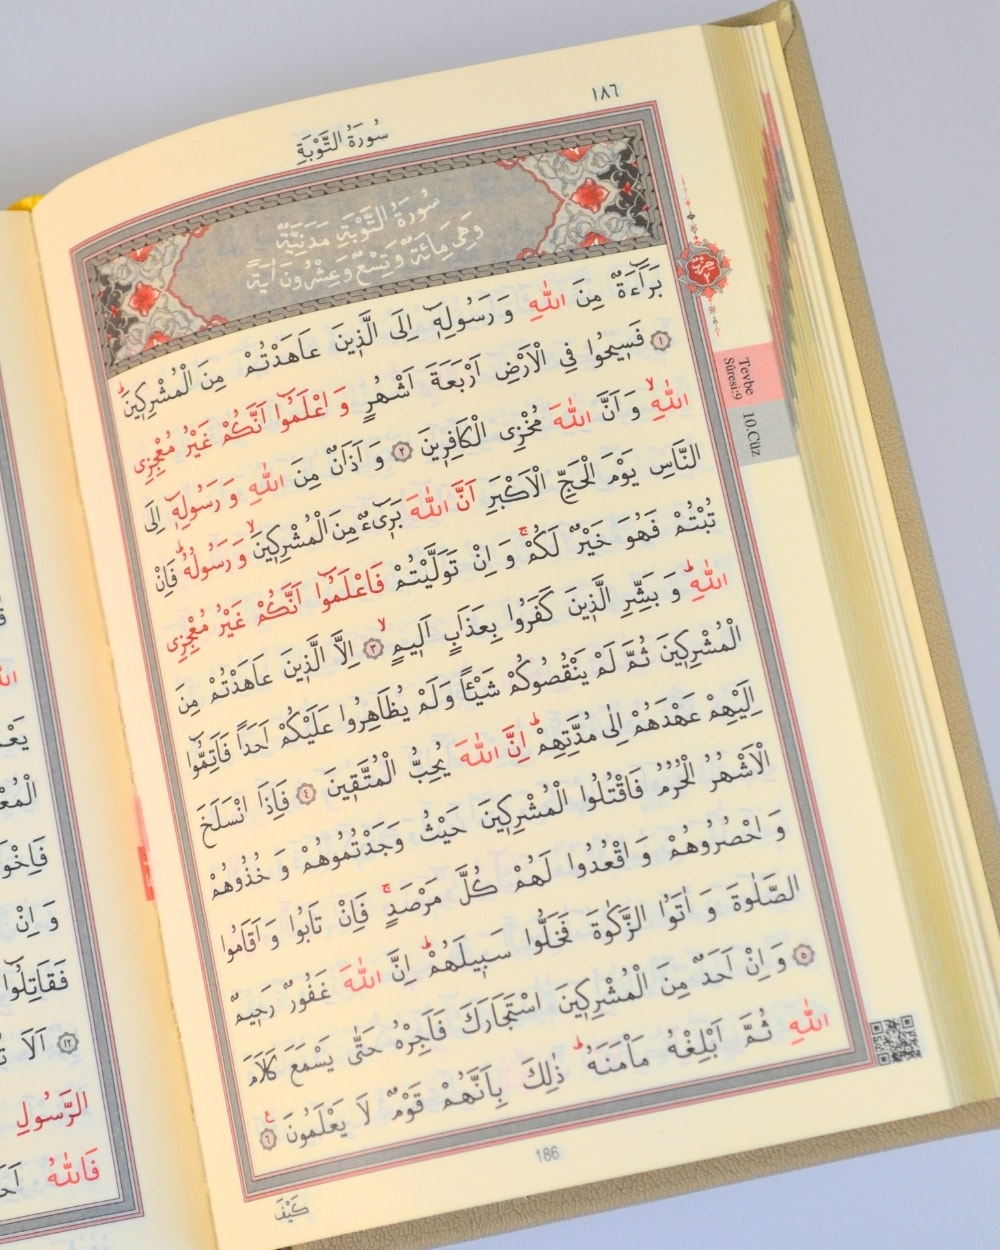 ١٨٦
سُورَةُ التَّوْبَةِ
سُورَةُ التَّوْبَةِ مَدَنِيَّةٌ
وَهِيَ مِائَةٌ وَتِسْعٌ وَعِشْرُونَ اٰيَةً
بَرَٓاءَةٌ مِنَ اللّٰهِ وَ رَسُولِه۪ٓ اِلَى الَّذ۪ينَ عَاهَدْتُمْ مِنَ الْمُشْرِك۪ينَۜ
﴿١﴾ فَس۪يحُوا فِي الْاَرْضِ اَرْبَعَةَ اَشْهُرٍ وَ اعْلَمُٓوا اَنَّكُمْ غَيْرُ مُعْجِزِي
اللّٰهِۙ وَ اَنَّ اللّٰهَ مُخْزِي الْكَافِر۪ينَ ﴿٢﴾ وَ اَذَانٌ مِنَ اللّٰهِ وَ رَسُولِه۪ٓ اِلَى
النَّاسِ يَوْمَ الْحَجِّ الْاَكْبَرِ اَنَّ اللّٰهَ بَر۪ٓيءٌ مِنَ الْمُشْرِك۪ينَۙ وَ رَسُولُهُۜ فَاِنْ
تُبْتُمْ فَهُوَ خَيْرٌ لَكُمْۚ وَ اِنْ تَوَلَّيْتُمْ فَاعْلَمُٓوا اَنَّكُمْ غَيْرُ مُعْجِزِي
اللّٰهِۜ وَ بَشِّرِ الَّذ۪ينَ كَفَرُوا بِعَذَابٍ اَل۪يمٍۙ ﴿٣﴾ اِلَّا الَّذ۪ينَ عَاهَدْتُمْ مِنَ
الْمُشْرِك۪ينَ ثُمَّ لَمْ يَنْقُصُوكُمْ شَيْـًٔا وَلَمْ يُظَاهِرُوا عَلَيْكُمْ اَحَدًا فَاَتِمُّٓوا
اِلَيْهِمْ عَهْدَهُمْ اِلٰى مُدَّتِهِمْۜ اِنَّ اللّٰهَ يُحِبُّ الْمُتَّق۪ينَ ﴿٤﴾ فَاِذَا انْسَلَخَ
الْاَشْهُرُ الْحُرُمُ فَاقْتُلُوا الْمُشْرِك۪ينَ حَيْثُ وَجَدْتُمُوهُمْ وَ خُذُوهُمْ
وَ احْصُرُوهُمْ وَ اقْعُدُوا لَهُمْ كُلَّ مَرْصَدٍۚ فَاِنْ تَابُوا وَ اَقَامُوا
الصَّلٰوةَ وَ اٰتَوُا الزَّكٰوةَ فَخَلُّوا سَب۪يلَهُمْۜ اِنَّ اللّٰهَ غَفُورٌ رَح۪يمٌ
﴿٥﴾ وَ اِنْ اَحَدٌ مِنَ الْمُشْرِك۪ينَ اسْتَجَارَكَ فَاَجِرْهُ حَتّٰى يَسْمَعَ كَلَامَ
اللّٰهِ ثُمَّ اَبْلِغْهُ مَأْمَنَهُۜ ذٰلِكَ بِاَنَّهُمْ قَوْمٌ لَا يَعْلَمُونَ ﴿٦﴾ ع
186
كَيْفَ
حزب
٢
Tevbe
Sûresi:9
10.Cüz
الْمُعْ
وَ اِنْ
فَقَاتِلُٓوا
﴿١٢﴾ اَلَا
الرَّسُولِ
فَاللّٰهُ